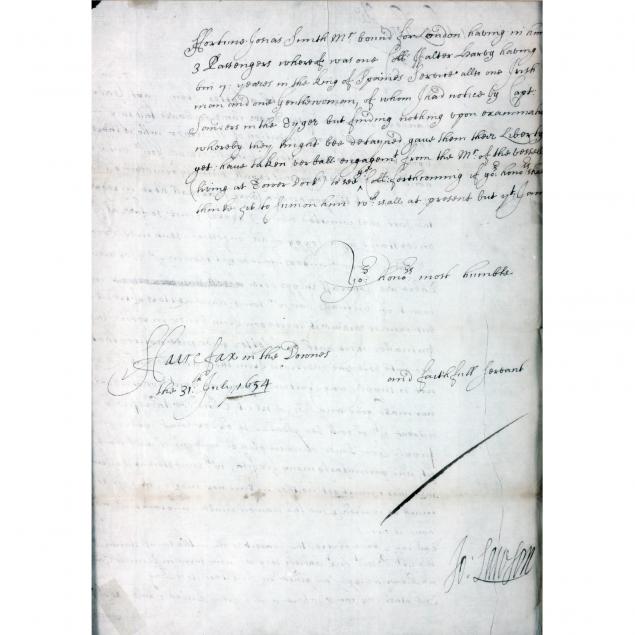 ffortune Josias Smith Mr. bound for London having in him
3 Passengers whereof was one Coll: Walter Harvy having
bin 7: yeares in the King of Spaines Service allso one Irish
man and one Gentlewoman, of whom I had notice by Capt:
in the Tyger but finding nothing upon examinat
whereby they might bee detayned gave them their Liberty
yet have taken verball engagemt. from the Mr. of the vessell
(living at Tower Dock) to see ye Coll: forthcoming if yor. honors. shall
thinke fit to summon him wch. is all at present but yt. I am
Yor: honors most humble
ffairefax in the Downes
the 31th. July 1654
and faithfull servant
Jo: Lawson